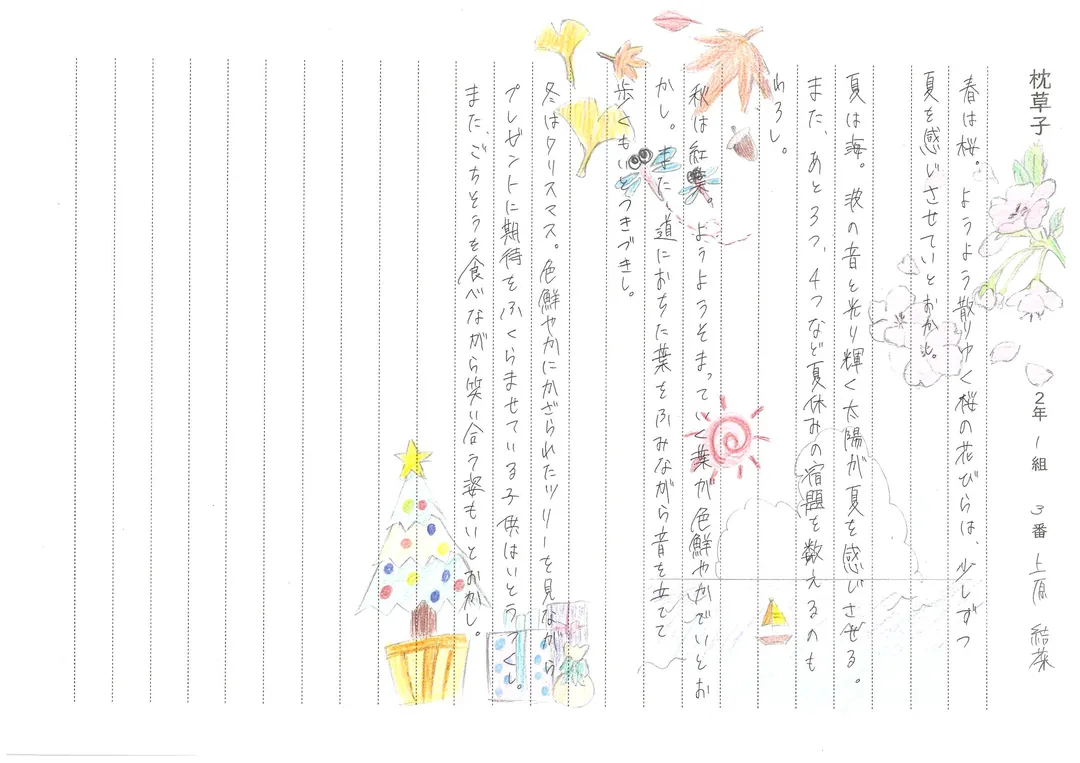 枕草子 2年1組 3番 上原 結菜
春は桜。ようよう散りゆく桜の花びらは、少しずつ
夏を感じさせていとおかし。
夏は海。波の音と光り輝く太陽が夏を感じさせる。
また、あと3つ、4つなど夏休みの宿題を数えるのも
わろし。
秋は紅葉。ようようそまっていく葉が色鮮やかでいとお
かし。また、道におちた葉をふみながら音を立てて
歩くもいとつきづきし。
冬はクリスマス。色鮮やかにかざられたツリーを見ながら
プレゼントに期待をふくらませている子供はいとうつくし。
また、ごちそうを食べながら笑い合う姿もいとおかし。